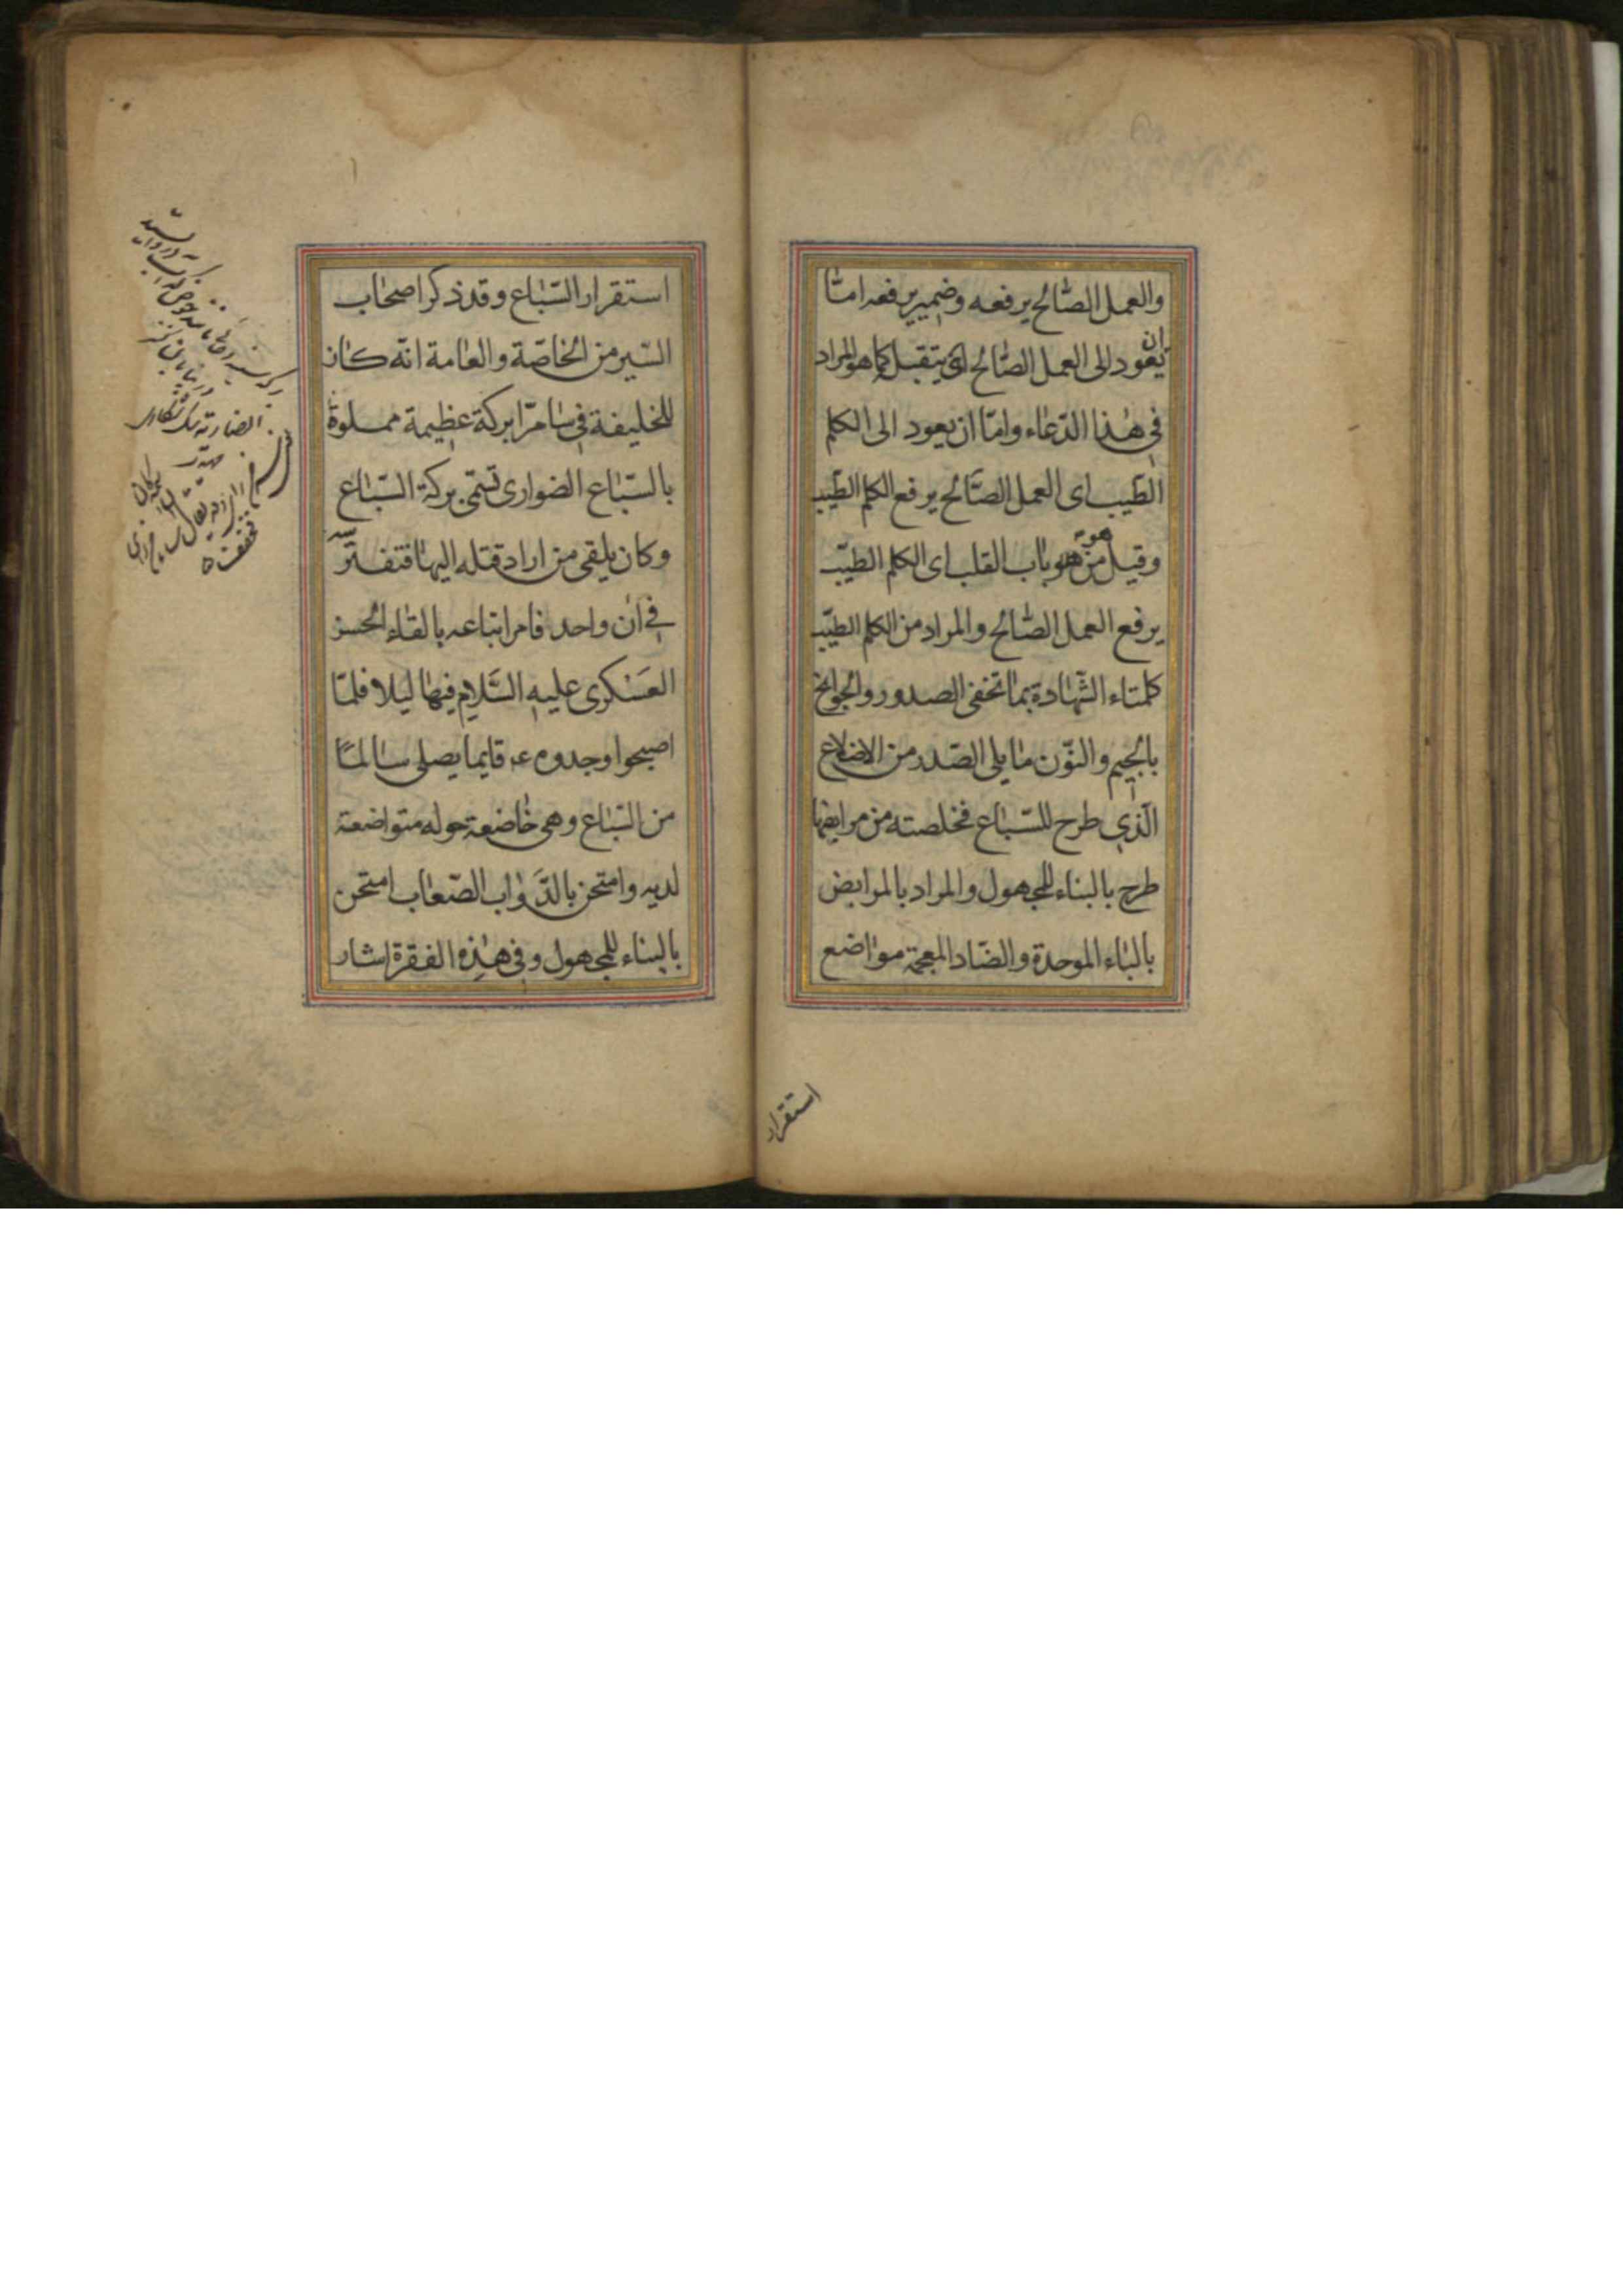 والعمل الصّالح يرفعه وضمير يرفعه امّا
ان يعود الى العمل الصّالح اى يتقبل كما هو المراد
فى هذا الدّعاء وامّا ان يعود الى الكلم
الطّيب اى العمل الصّالح يرفع الكلم الطّيب
وقيل هو من باب القلب اى الكلم الطيّب
يرفع العمل الصّالح والمراد من الكلم الطيّب
كلمتاء الشّهادة بما تخفى الصدور والجوانح
بالجيم والنّون ما يلى الصّدر من الاضلاع
الّذى طرح للسّباع فخلصته من مرابضها
طرح بالبناء للمجهول والمراد بالمرابض
بالباء الموحدة والضّاد المعجمة مواضع
استقرار
استقرار السّباع وقد ذكر اصحاب
السّير من الخاصّة والعامة انّه كان
للخليفة فى سامرّا بركة عظيمة مملوة
بالسّباع الضوارى تسمّى بركة السّباع
وكان يلقى من اراد قتله اليها فتفترسه
فى ان واحد فامر اتباعه بالقاء الحسن
العسكرى عليه السَّلام فيها ليلا فلمّا
اصبحوا وجدوه ع قايما يصلى سالمًا
من السّباع وهى خاضعة حوله متواضعة
لديه وامتحن بالدَّواب الصّعاب امتحن
بالبناء للمجهول وفى هذه الفقرة اشار